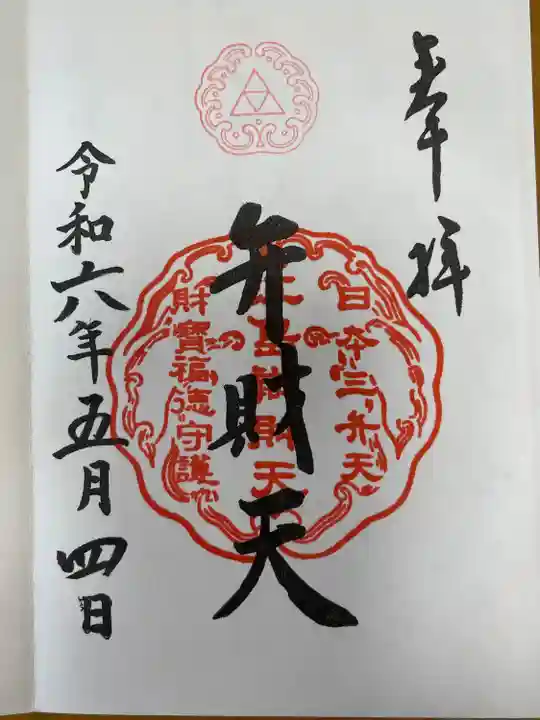 奉拝
日本三弁天
財天
財寶福徳守護
弁財天
令和六年五月四日